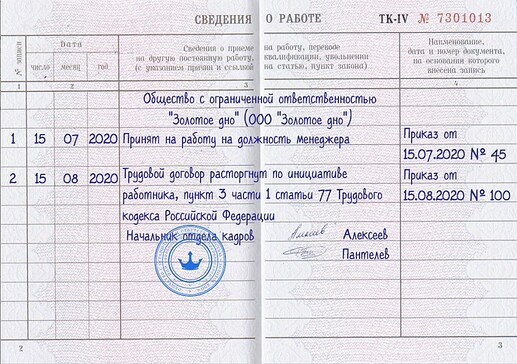 СВЕДЕНИЯ О РАБОТЕ ТК-IV № 7301013
№ записи
Дата
число месяц год
Сведения о приеме на работу, переводе
на другую постоянную работу, квалификации, увольнении
(с указанием причин и ссылкой на статью, пункт закона)
Наименование,
дата и номер документа,
на основании которого
внесена запись
1 2 3 4
Общество с ограниченной ответственностью
"Золотое дно" (ООО "Золотое дно")
1 15 07 2020 Принят на работу на должность менеджера Приказ от
15.07.2020 № 45
2 15 08 2020 Трудовой договор расторгнут по инициативе Приказ от
работника, пункт 3 части 1 статьи 77 Трудового 15.08.2020 № 100
кодекса Российской Федерации
Начальник отдела кадров Алексеев
Пантелев
2 3